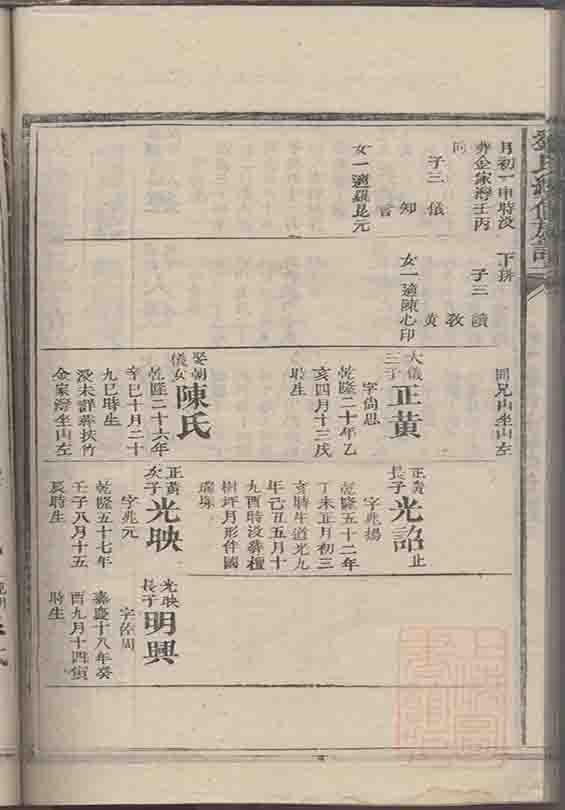 月初一申時没
葬金家灣壬丙
向
子三 儀
知
言
女一適羅昆元
下拚
子三 讀
教
黄
女一適陳心印
同兄山坐山左
大儀
三子
正黄
字尚思
乾隆二十年乙
亥四月十三戌
時生
娶朝
儀女
陳氏
乾隆二十六年
辛巳十月二十
九巳時生
没未詳葬扶竹
金家灣坐山左
正黄
長子
光詔
止
字兆揚
乾隆五十二年
丁未正月初三
亥時生道光九
年己丑五月十
九酉時没葬檀
樹坪月形伴國
瑞塚
正黄
次子
光映
字兆元
乾隆五十七年
壬子八月十五
辰時生
光映
長子
明興
字佐周
嘉慶十八年癸
酉九月十四寅
時生